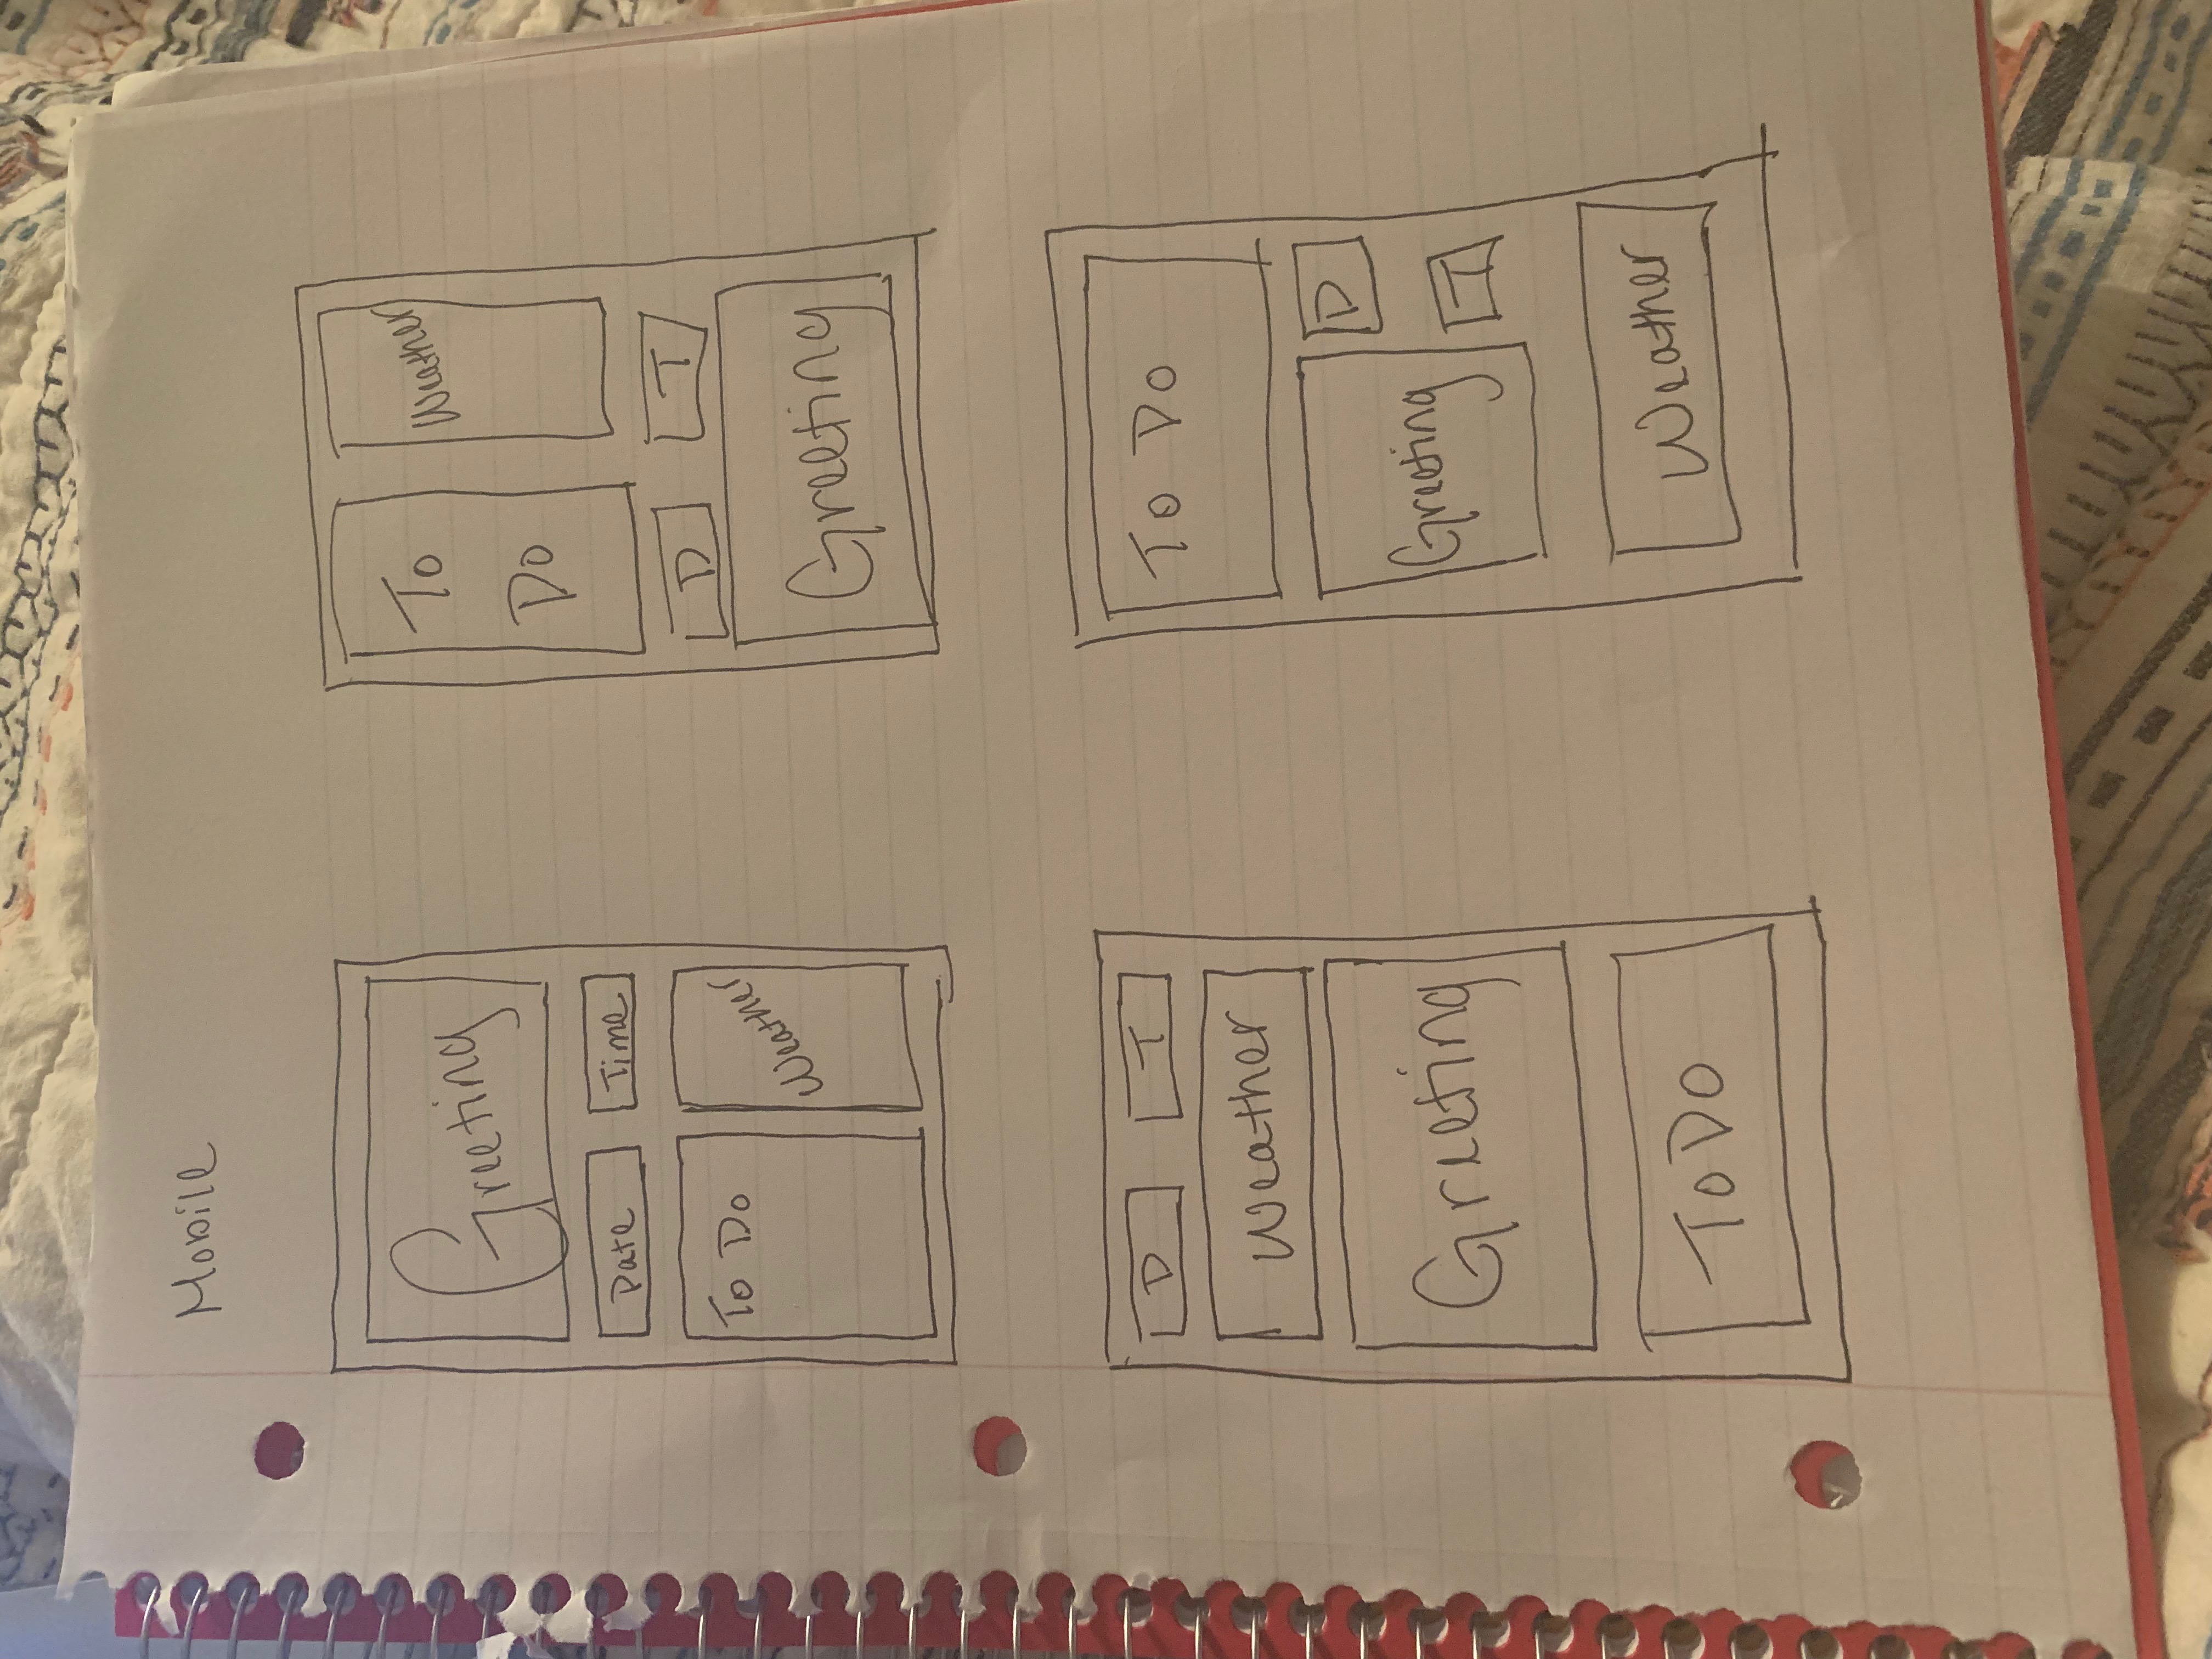 Mobile
Greeting
Date Time
To Do Weather
To
Do
Weather
D T
Greeting
D T
Weather
Greeting
To Do
To Do
Greeting
D
T
Weather